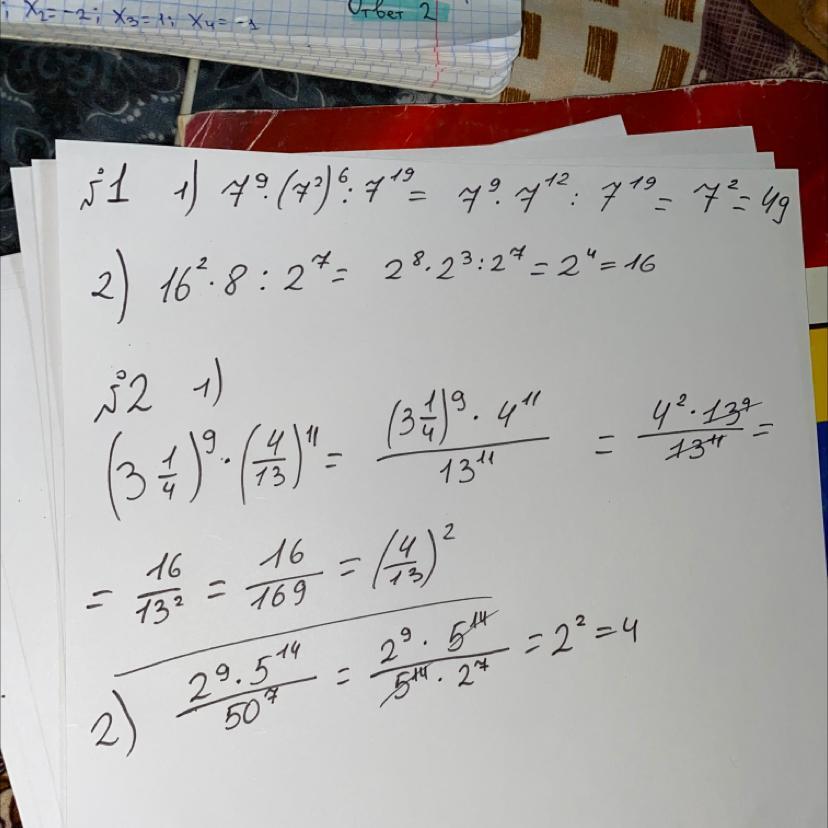 ; x₂=-2; x₃=1; x₄=-1
Ответ 2
№1 1) 7⁹·(7²)⁶:7¹⁹= 7⁹·7¹²:7¹⁹=7²=49
2) 16²·8:2⁷= 2⁸·2³:2⁷=2⁴=16
№2 1)
(3 1/4)⁹·(4/13)¹¹= (3 1/4)⁹·4¹¹/13¹¹ = 4²·13⁹/13¹¹=
= 16/13² = 16/169 = (4/13)²
2) 2⁹·5¹⁴/50⁷ = 2⁹·5¹⁴/5¹⁴·2⁷ =2²=4